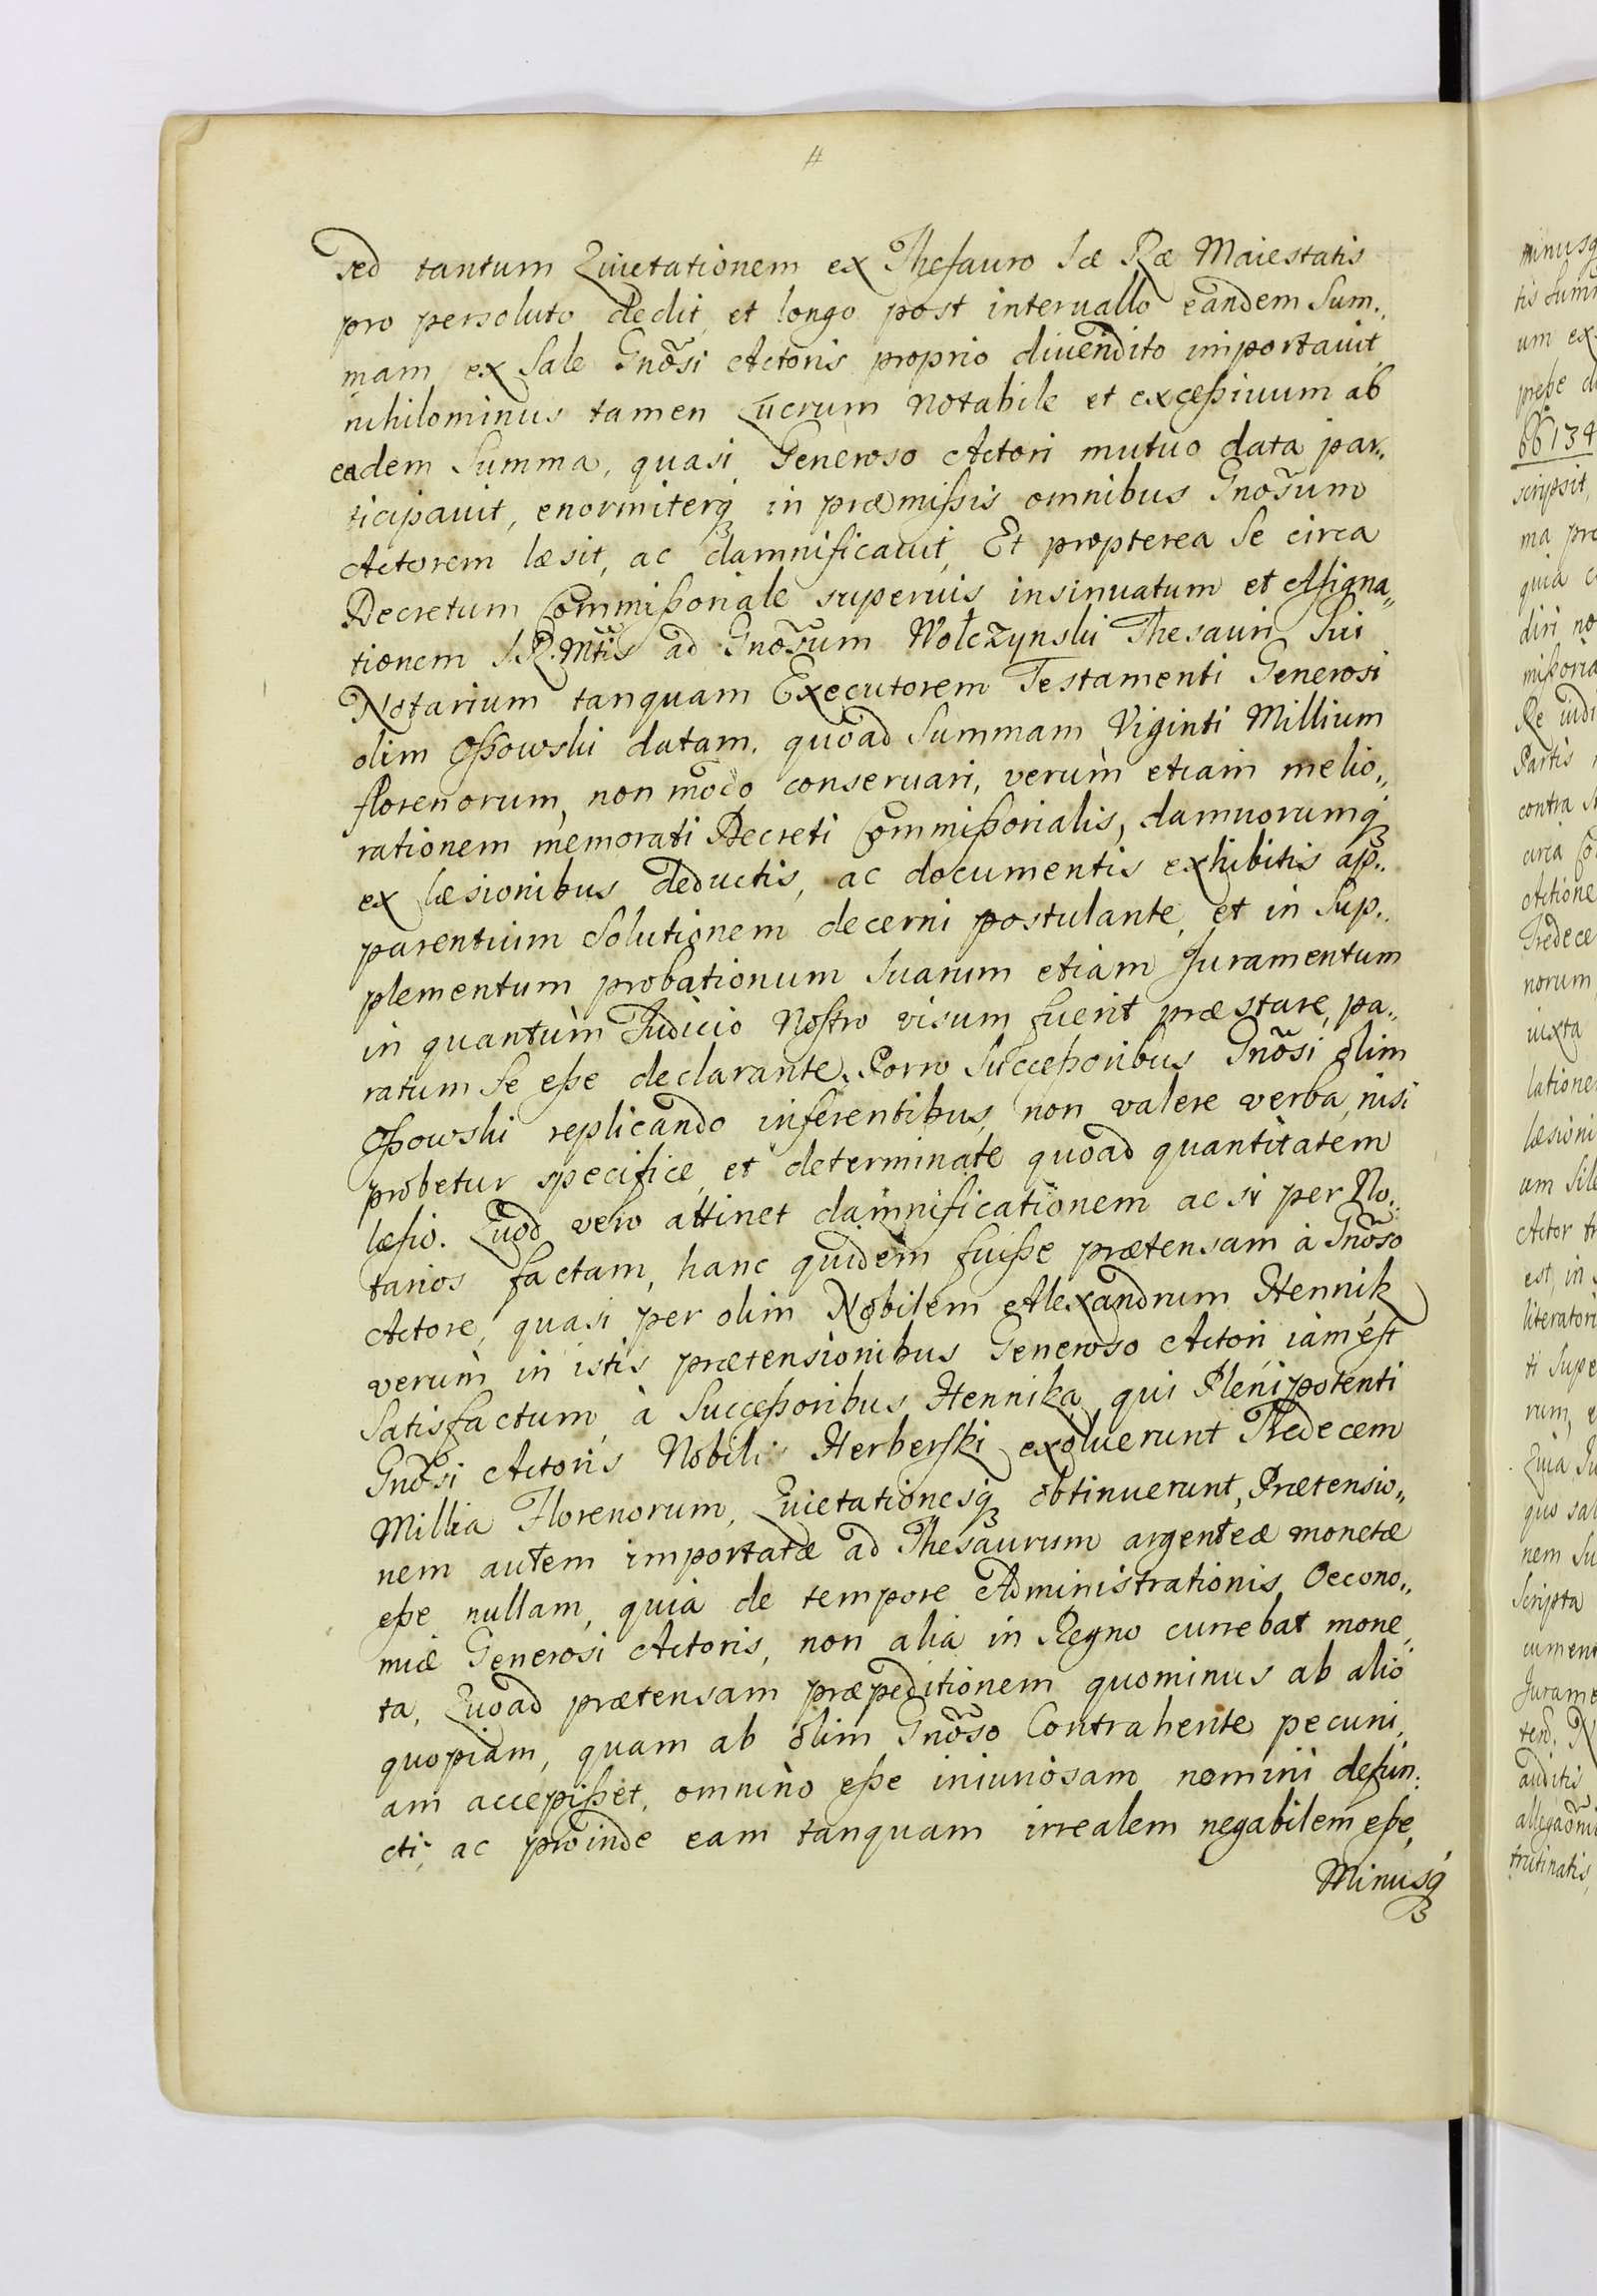 sed tantum Quietationem ex Thesauro Sæ Ræ Maiestatis
pro persoluto dedit, et longo post interuallo eandem Sum„
mam ex Sale Gnõsi Actoris proprio diuendito importauit,
nihilominus tamen Lucrum notabile et excessiuum ab
eadem Summa, quasi Generoso Actori mutuo data par„
ticipauit, enormiterq₃ in præmissis omnibus Gnosum
Actorem læsit, ac damnificauit, Et propterea Se circa
Decretum Commissoriale superius insinuatum et Assigna„
tionem S.R.Mtis ad Gnosum Wolczynski Thesauri Sui
Notarium tanquam Executorem Testamenti Generosi
olim Ossowski datam, quoad Summam Viginti Millium
florenorum, non modo conseruari, verùm etiam melio„
rationem memorati Decreti Commissorialis, damnorumq₃
ex læsionibus deductis, ac documentis exhibitis ap„
parentium Solutionem decerni postulante, et in Sup„
plementum probationum Suarum etiam Juramentum
in quantùm Judicio Nostro visum fuerit præstare, pa„
ratum Se esse declarante. Porro Successoribus Gnõsi olim
Ossowski replicando inferentibus, non valere verba, nisi
probetur specifice, et determinate quoad quantitatem
læsio. Quod vero attinet damnificationem ac si per No„
tarios factam, hanc quidem fuisse prætensam à Gnõso
Actore, quasi per olim Nobilem Alexandrum Hennik
verùm in istis prætensionibus Generoso Actori iam est
Satisfactum, à Successoribus Hennika, qui Plenipotenti
Gnõsi Actoris Nobili Herberski exoluerunt Tredecem
Millia Florenorum, Quietationesq₃ obtinuerunt, Prætensio„
nem autem importatæ ad Thesaurum argenteæ monetæ
esse nullam, quia de tempore Administrationis Oecono„
miæ Generosi Actoris, non alia in Regno currebat mone„
ta, Quoad prætensam præpeditionem quominus ab alio
quopiam, quam ab olim Gnõso Contrahente pecuni„
am accepisset, omnino esse iniuriosam nomini defun„
cti, ac proinde eam tanquam irrealem negabilem esse,
Minusq₃